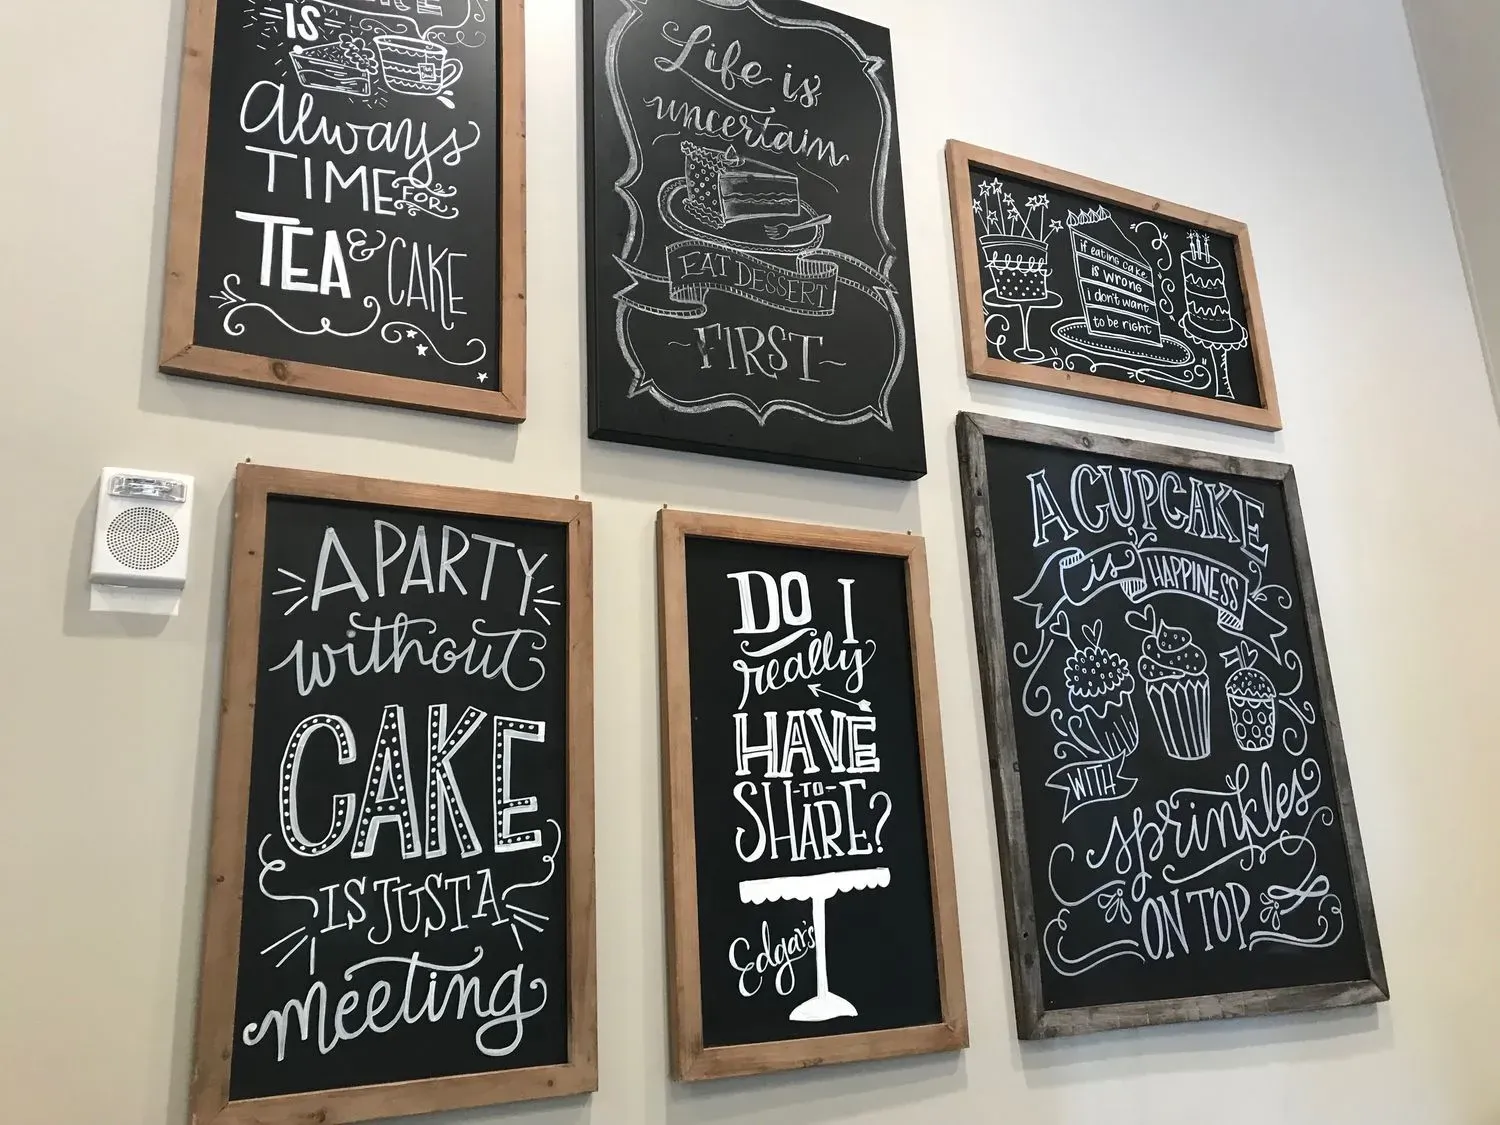 IS
Always
TIME FOR
TEA & CAKE
Life is
uncertain
EAT DESSERT
-FIRST-
if eating cake
is wrong
I don't want
to be right
A PARTY
without
CAKE
IS JUST A
meeting
DO I
really
HAVE
-TO-
SHARE?
Edgar's
A CUPCAKE
is HAPPINESS
WITH
sprinkles
ON TOP